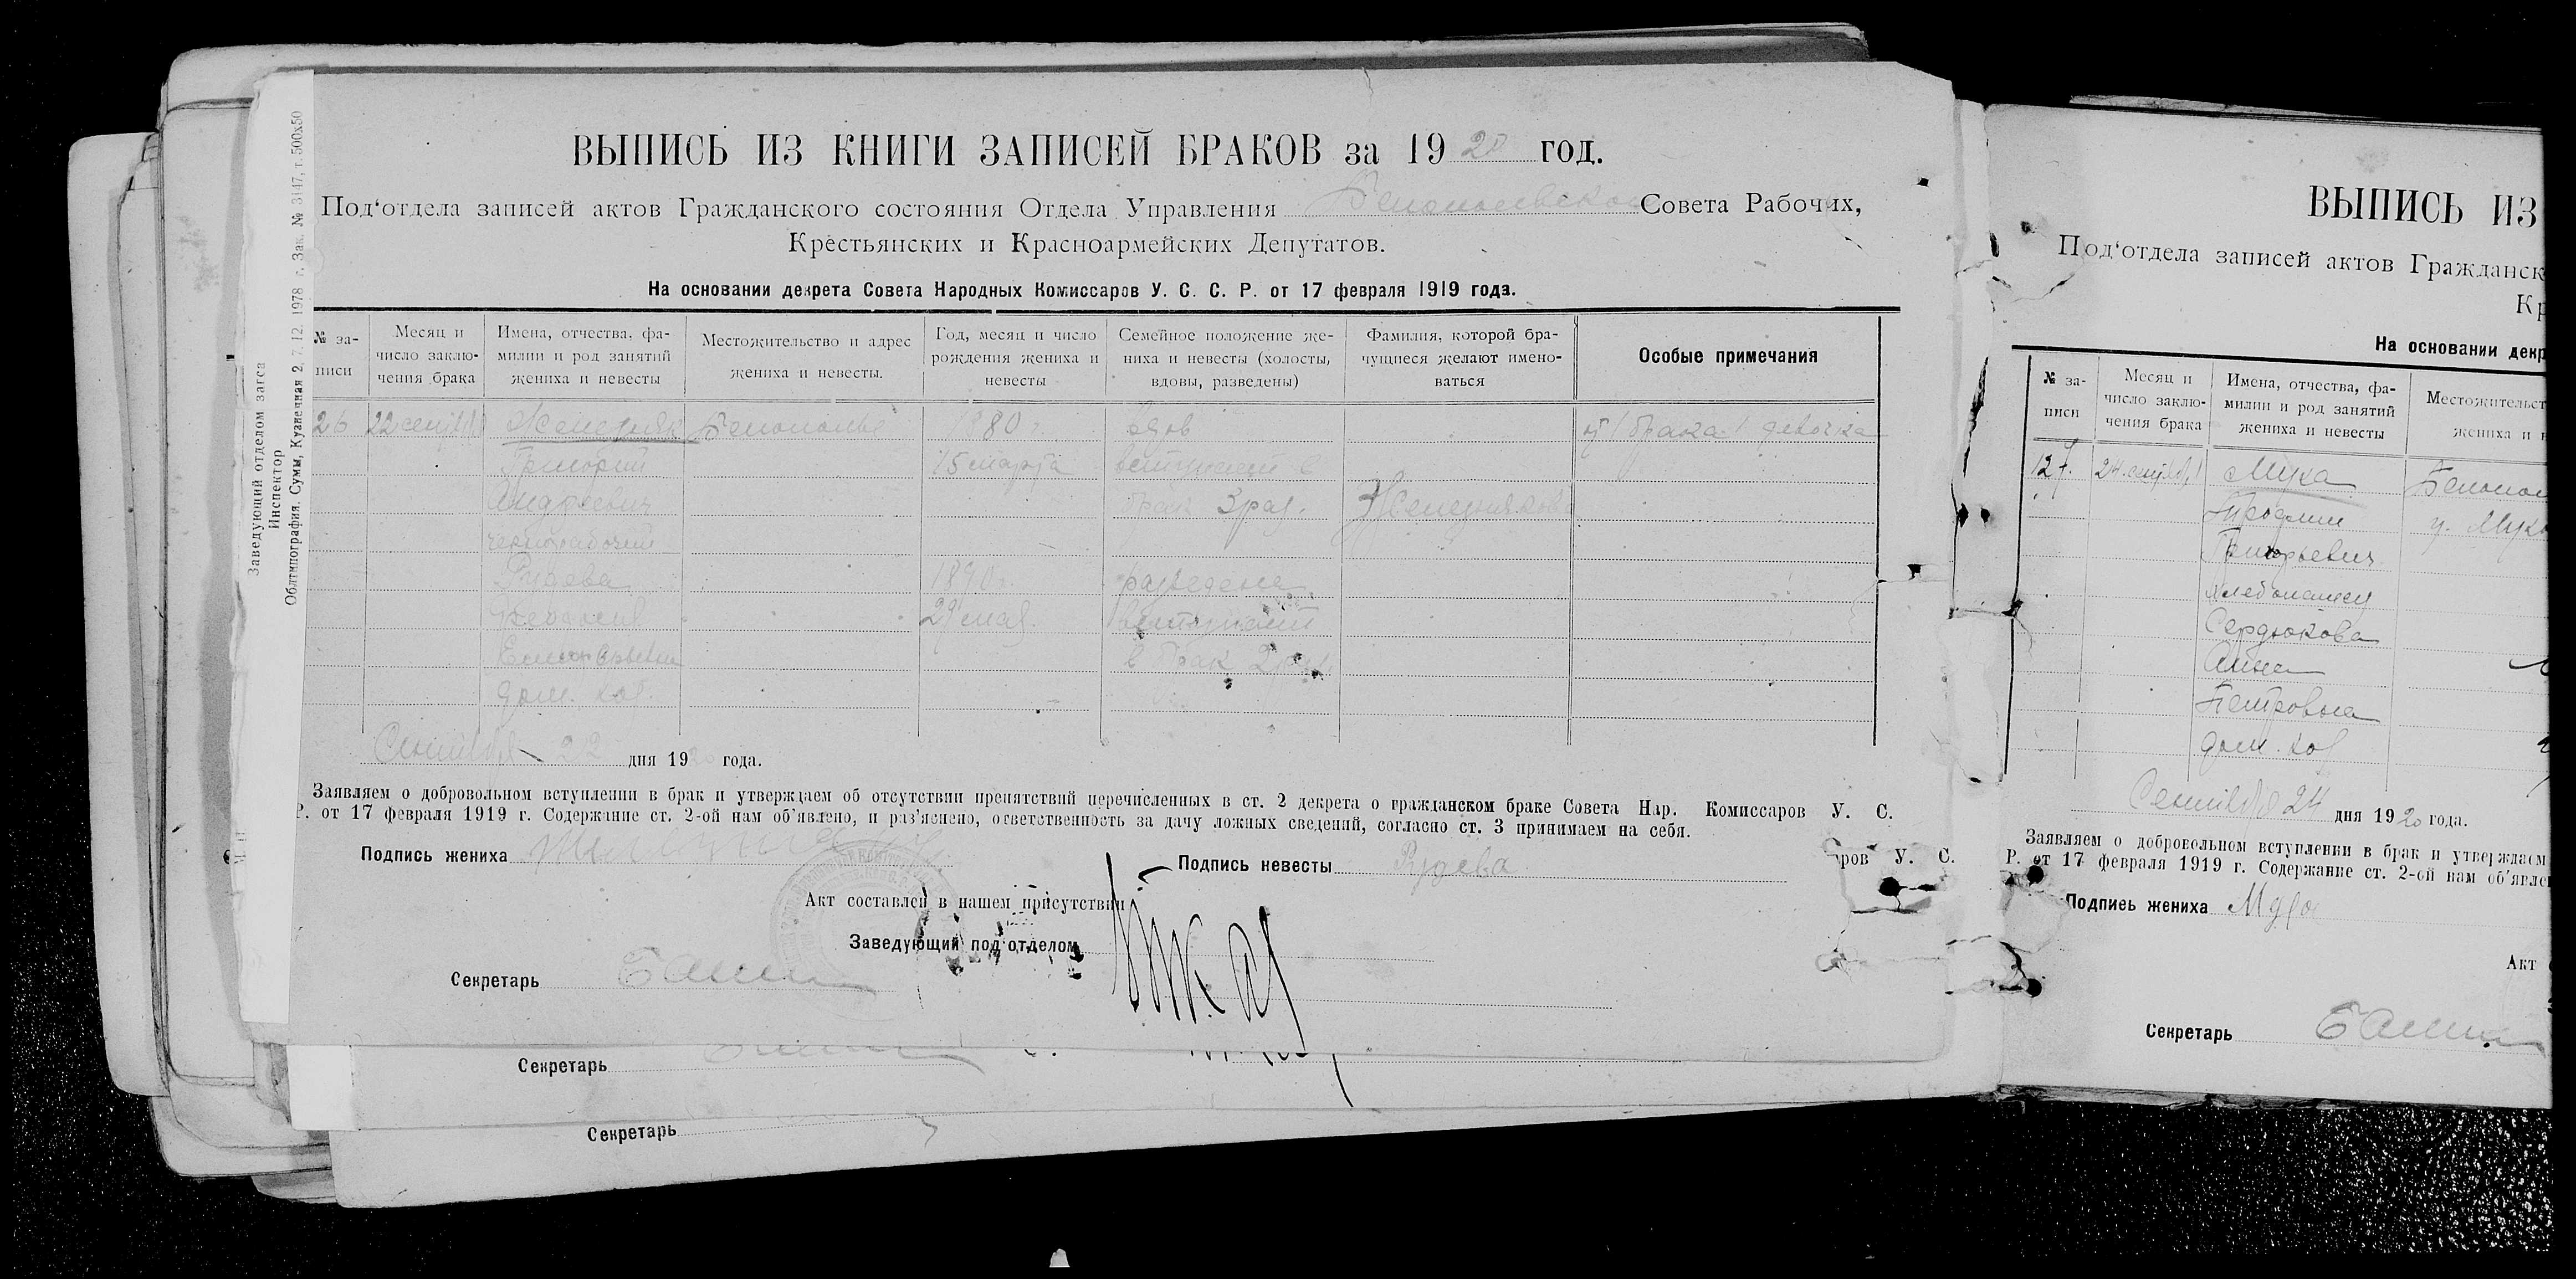 ВЫПИСЬ ИЗ КНИГИ ЗАПИСЕЙ БРАКОВ за 1920 год.
Под‘отдела записей актов Гражданского состояния Отдела Управления Совета Рабочих,
Крестьянских и Красноармейских Депутатов.
На основании декрета Совета Народных Комиссаров У. С. С. Р. от 17 февраля 1919 года.
№ за-
писи
Месяц и
число заклю-
чения брака
Имена, отчества, фа-
милии и род занятий
жениха и невесты
Местожительство и адрес
жениха и невесты.
Год, месяц и число
рождения жениха и
невесты
Семейное положение же-
ниха и невесты (холосты,
вдовы, разведены)
Фамилия, которой бра-
чущиеся желают имено-
ваться
Особые примечания
26 22 сентября Белополье 880 вдов от 1 брака 1 девочка
Григорий 15 марта вступает в
Андреевич брак 3 раз.
чернорабочий
Рудева 1890 разведена
29 мая вступает
в брак 2 раз
дом. хоз.
Сентября 22 дня 1920 года.
Заявляем о добровольном вступлении в брак и утверждаем об отсутствии препятствий перечисленных в ст. 2 декрета о гражданском браке Совета Нар. Комиссаров У. С.
Р. от 17 февраля 1919 г. Содержание ст. 2-ой нам об‘явлено, и раз‘яснено, ответственность за дачу ложных сведений, согласно ст. 3 принимаем на себя.
Подпись жениха
Подпись невесты Рудева
Акт составлен в нашем присутствии
Заведующий под‘отделом
Секретарь
Секретарь
Секретарь
Заведующий отделом загса
Инспектор
Облтипография. Сумы, Кузнечная 2, 7. 12. 1978 г. Зак. № 3447, т. 500х50
ров У. С.
ВЫПИСЬ ИЗ
Под‘отдела записей актов Гражданск
Кр
На основании декр
№ за-
писи
Месяц и
число заклю-
чения брака
Имена, отчества, фа-
милии и род занятий
жениха и невесты
Местожительст
жениха и н
127. 24 сентября Мука Белопол
Григорьевич
Сердюкова
Анна
Петровна
дом. хоз
Сентября 24 дня 1920 года.
Заявляем о добровольном вступлении в брак и утверждаем
Р. от 17 февраля 1919 г. Содержание ст. 2-ой нам об‘явле
Подпись жениха
Акт
Секретарь